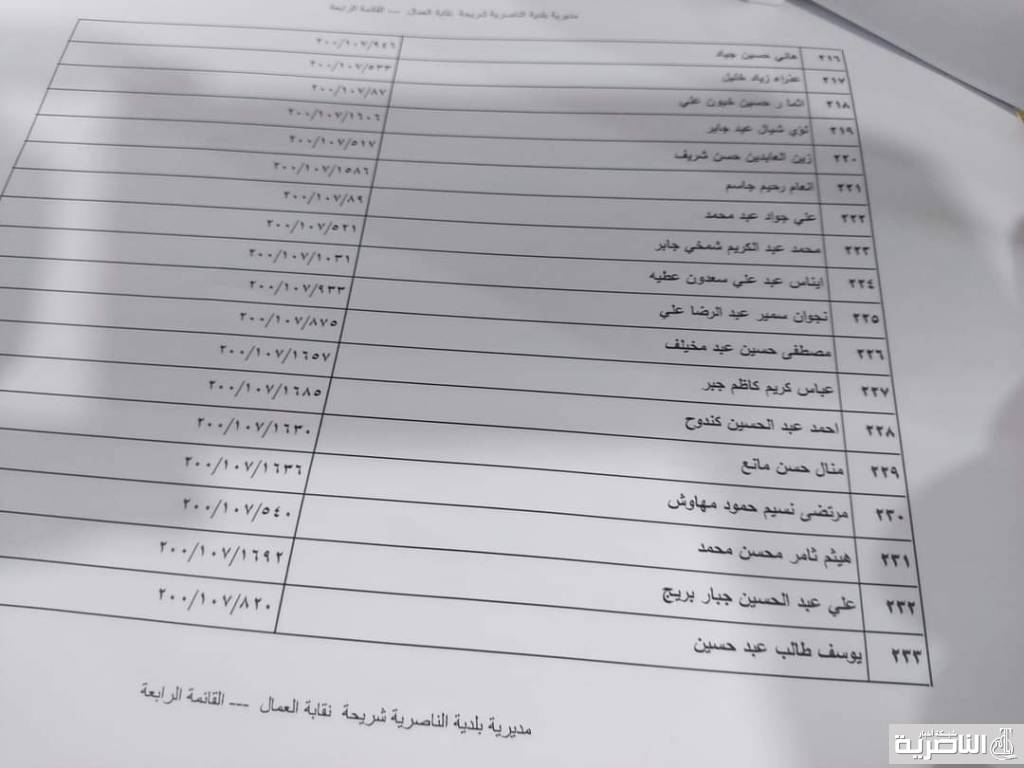 مديرية بلدية الناصرية شريحة نقابة العمال --- القائمة الرابعة
٢١٦ هاني حسين جياد ٢٠٠/١٠٧/٩٤٦
٢١٧ عذراء زياد خليل ٢٠٠/١٠٧/٥٣٣
٢١٨ اثمار حسين خيون علي ٢٠٠/١٠٧/٨٧
٢١٩ لؤي شيال عبد جابر ٢٠٠/١٠٧/١٦٠٦
٢٢٠ زين العابدين حسن شريف ٢٠٠/١٠٧/٥١٧
٢٢١ انعام رحيم جاسم ٢٠٠/١٠٧/١٥٨٦
٢٢٢ علي جواد عبد محمد ٢٠٠/١٠٧/٨٩
٢٢٣ محمد عبد الكريم شمخي جابر ٢٠٠/١٠٧/٥٢١
٢٢٤ ايناس عبد علي سعدون عطيه ٢٠٠/١٠٧/١٠٣١
٢٢٥ نجوان سمير عبد الرضا علي ٢٠٠/١٠٧/٩٣٣
٢٢٦ مصطفى حسين عبد مخيلف ٢٠٠/١٠٧/٨٧٥
٢٢٧ عباس كريم كاظم جبر ٢٠٠/١٠٧/١٦٥٧
٢٢٨ احمد عبد الحسين كندوح ٢٠٠/١٠٧/١٦٨٥
٢٢٩ منال حسن مانع ٢٠٠/١٠٧/١٦٣٠
٢٣٠ مرتضى نسيم حمود مهاوش ٢٠٠/١٠٧/١٦٣٦
٢٣١ هيثم ثامر محسن محمد ٢٠٠/١٠٧/٥٤٠
٢٣٢ علي عبد الحسين جبار بريج ٢٠٠/١٠٧/١٦٩٢
٢٣٣ يوسف طالب عبد حسين ٢٠٠/١٠٧/٨٢٠
مديرية بلدية الناصرية شريحة نقابة العمال --- القائمة الرابعة
شبكة اخبار
الناصرية